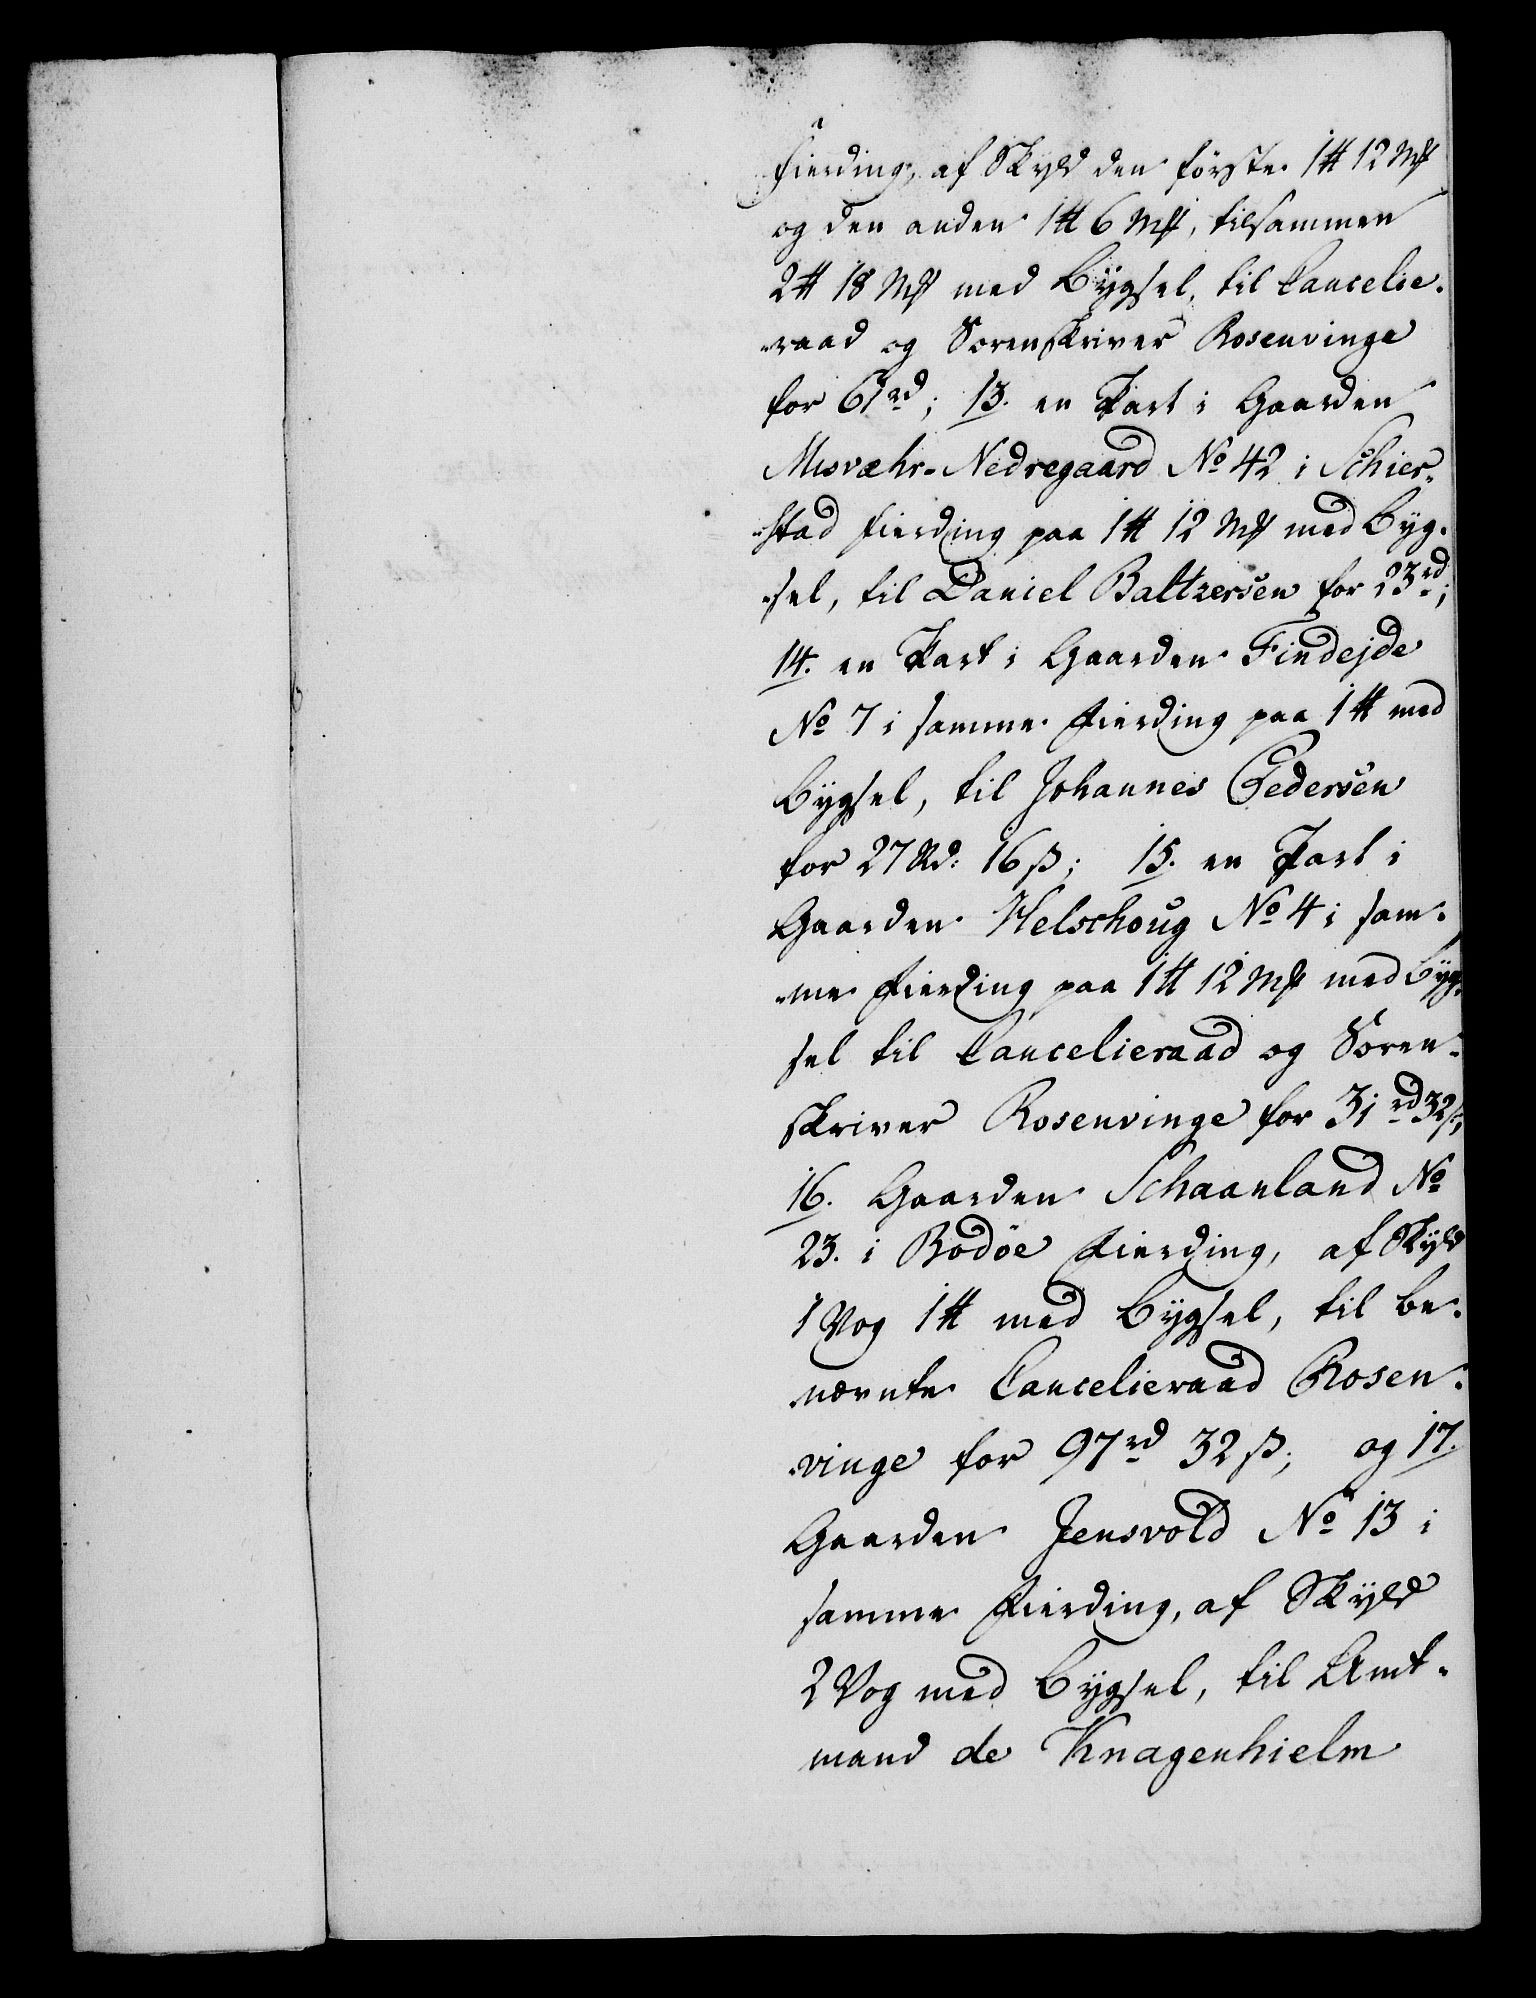 Fierding, af Skyld den første 1 ℔ 12 Mk
og den anden 1 ℔ 6 Mk, tilsammen
2 ℔ 18 Mk med Bygsel, til Cancelie-
-raad og Sorenskriver Rosenvinge
for 61 rd; 13. en Part i Gaarden
Misvæhr-Nedregaard No 42 i Schier-
-stad Fierding paa 1 ℔ 12 Mk med Byg-
-sel, til Daniel Baltzersen for 23 rd;
14. en Part i Gaarden Findejde
No 7 i samme Fierding paa 1 ℔ med
Bÿgsel, til Johannes Pedersen
for 27 Rd: 16 ß; 15. en Part i
Gaarden Helschoug No 4 i sam-
-me Fierding paa 1 ℔ 12 Mk med Bÿg-
sel til Cancelieraad og Soren-
skriver Rosenvinge for 31 rd 32 ß;
16. Gaarden Schaanland No
23. i Bodöe Fierding, af Skÿld
1 Vog 1 ℔ med Bÿgsel, til be-
-nævnte Cancelieraad Rosen-
-vinge for 97 rd 32 ß; og 17.
Gaarden Jensvold No 13 i
samme Fierding, af Skÿld
2 Vog med Bÿgsel, til Amt-
mand de Knagenhielm